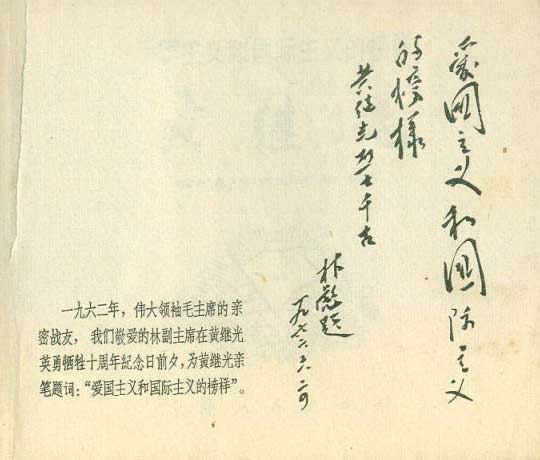 愛國主义和國际主义
的榜様
黄继光烈士千古
林彪题
一九六二年，伟大领袖毛主席的亲
密战友，我们敬爱的林副主席在黄继光
英勇牺牲十周年紀念日前夕，为黄继光亲
笔题词：“爱国主义和国际主义的榜样”。